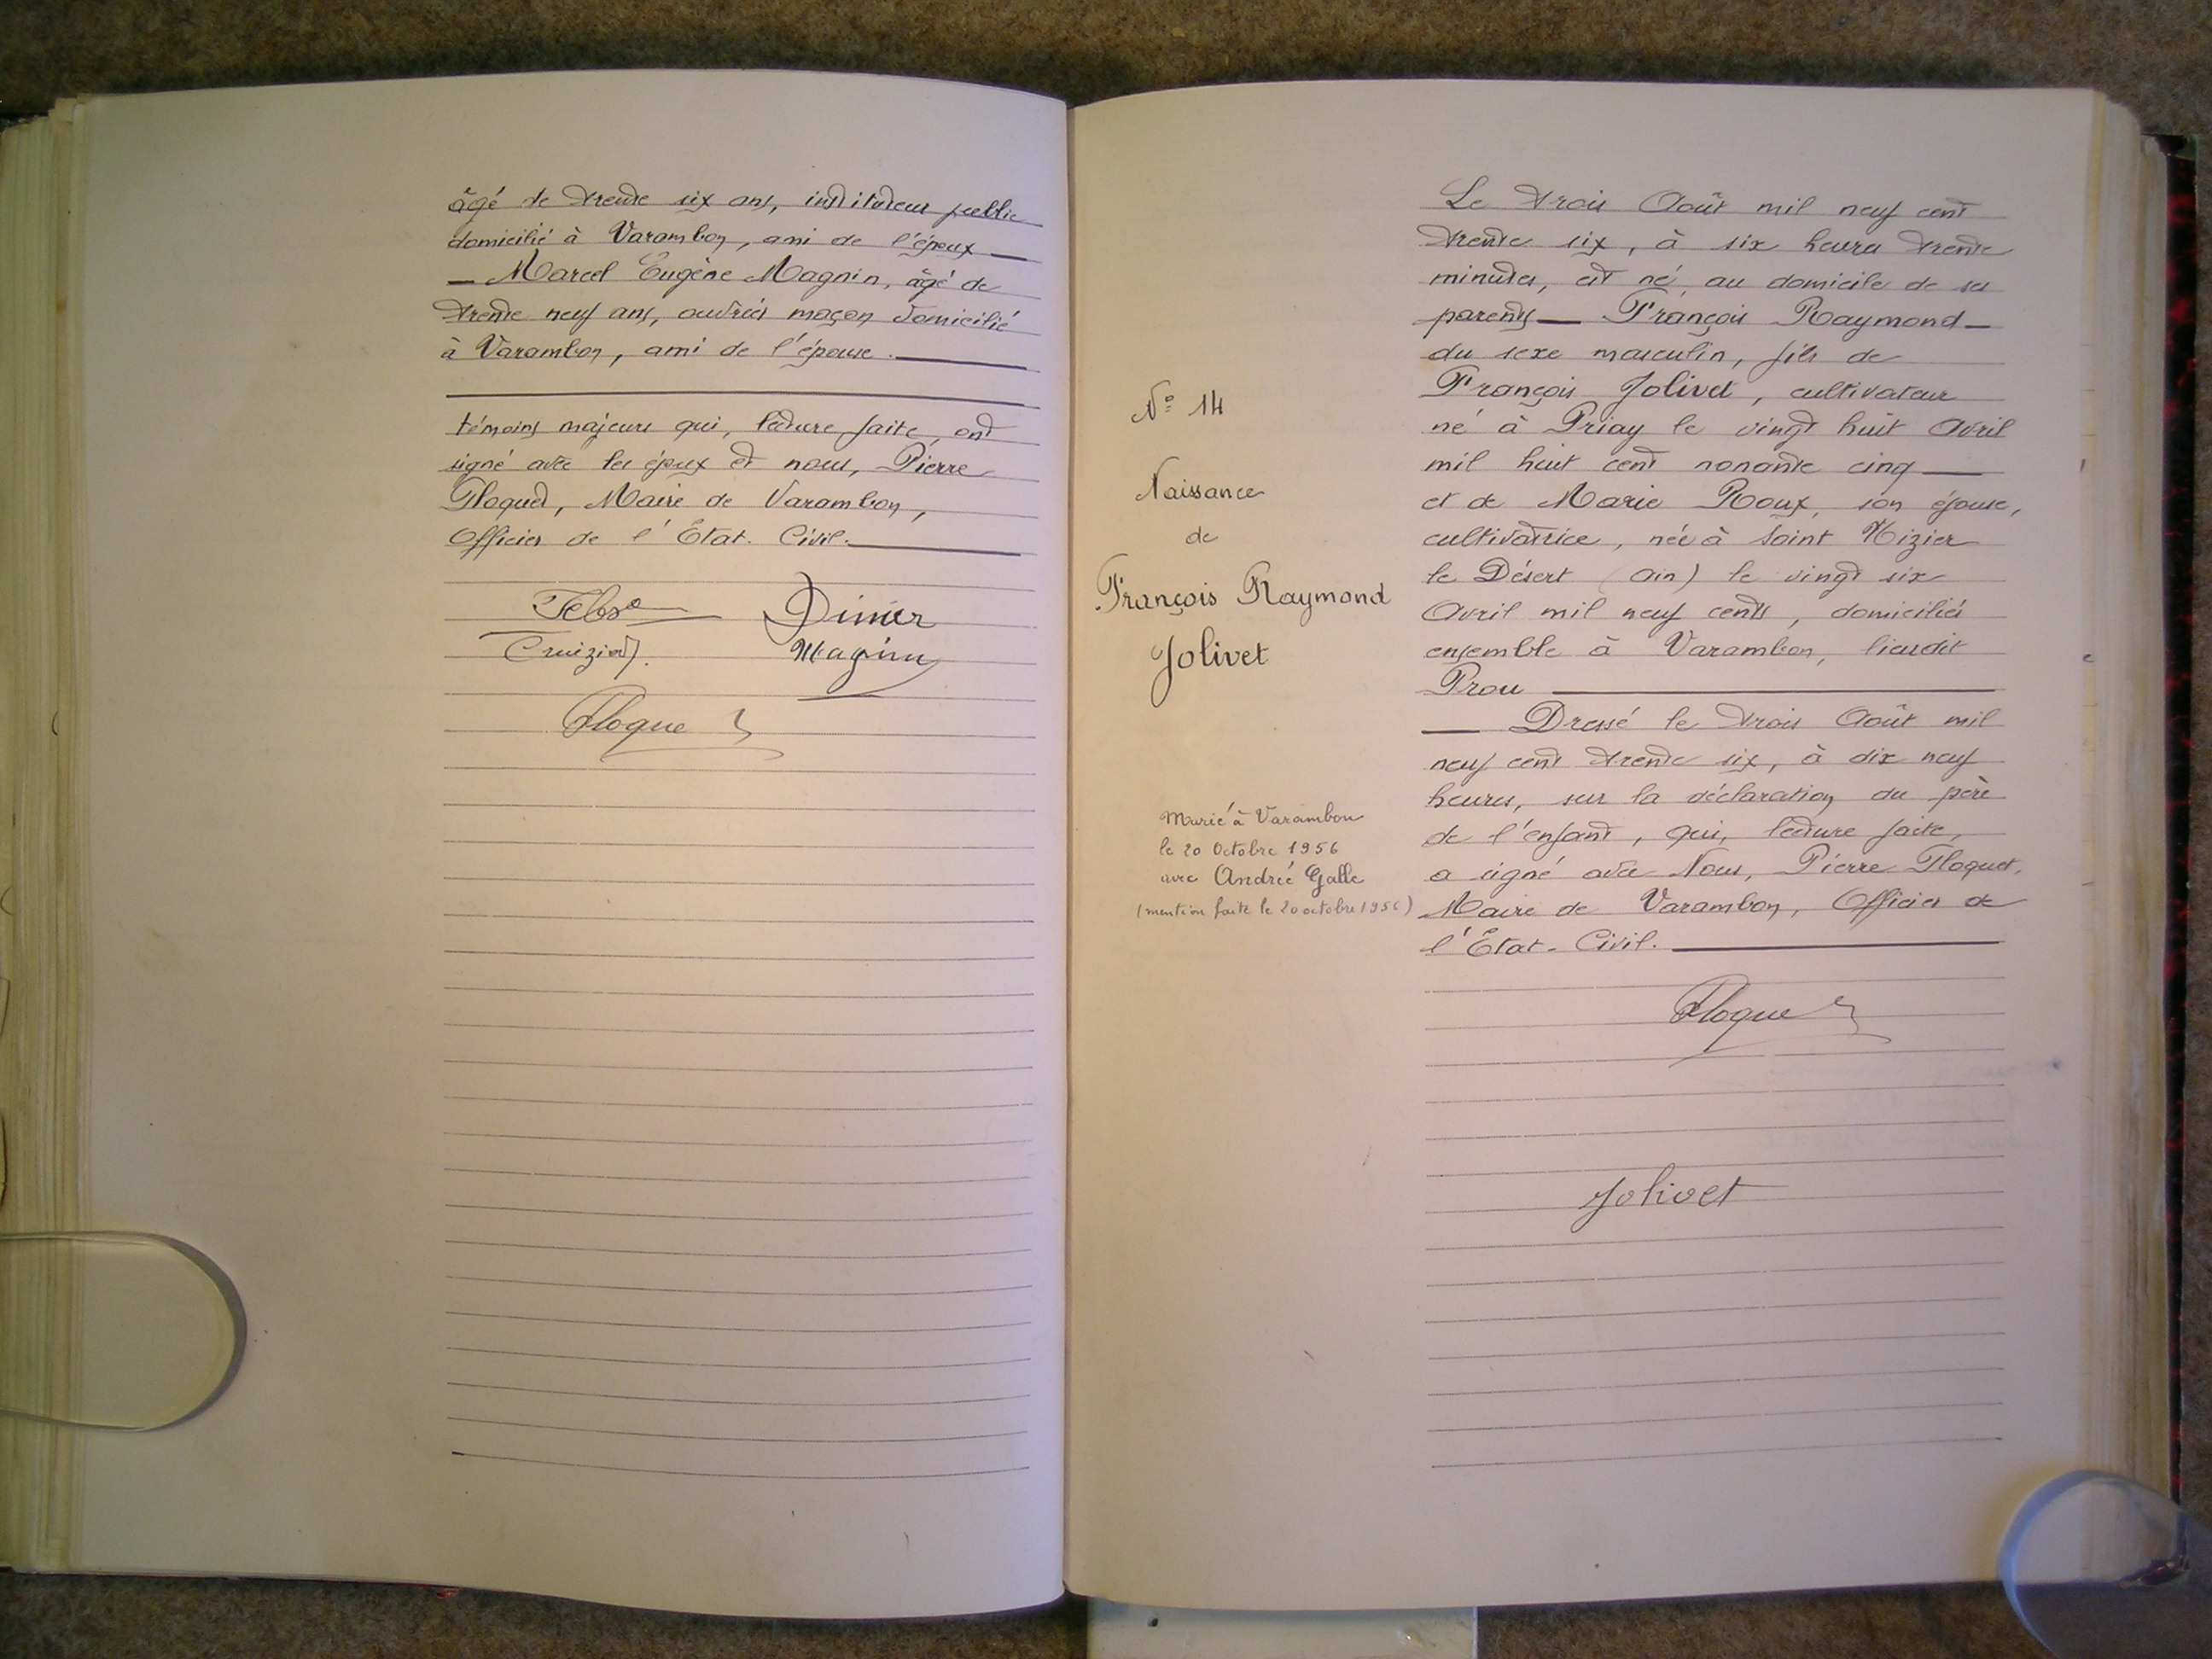 âgé de trente six ans, instituteur public
domicilié à Varambon, ami de l'époux
— Marcel Eugène Magnin, âgé de
trente neuf ans, ouvrier maçon domicilié
à Varambon, ami de l'épouse.
témoins majeurs qui, lecture faite, ont
signé avec les époux et nous, Pierre
Floquet, Maire de Varambon,
Officier de l'État-Civil.
Dinier
Magnin
Floquet
N° 14
Naissance
de
François Raymond
Jolivet
Marié à Varambon
le 20 Octobre 1956
avec Andrée Galle
(mention faite le 20 octobre 1956)
Le trois Août mil neuf cent
trente six, à six heures trente
minutes, est né, au domicile de ses
parents — François Raymond —
du sexe masculin, fils de
François Jolivet, cultivateur
né à Priay le vingt huit Avril
mil huit cent nonante cinq —
et de Marie Roux, son épouse,
cultivatrice, née à Saint Nizier
le Désert (Ain) le vingt six
Avril mil neuf cents, domiciliés
ensemble à Varambon, lieudit
Prou
— Dressé le trois Août mil
neuf cent trente six, à dix neuf
heures, sur la déclaration du père
de l'enfant, qui, lecture faite,
a signé avec Nous, Pierre Floquet,
Maire de Varambon, Officier de
l'État-Civil.
Floquet
Jolivet